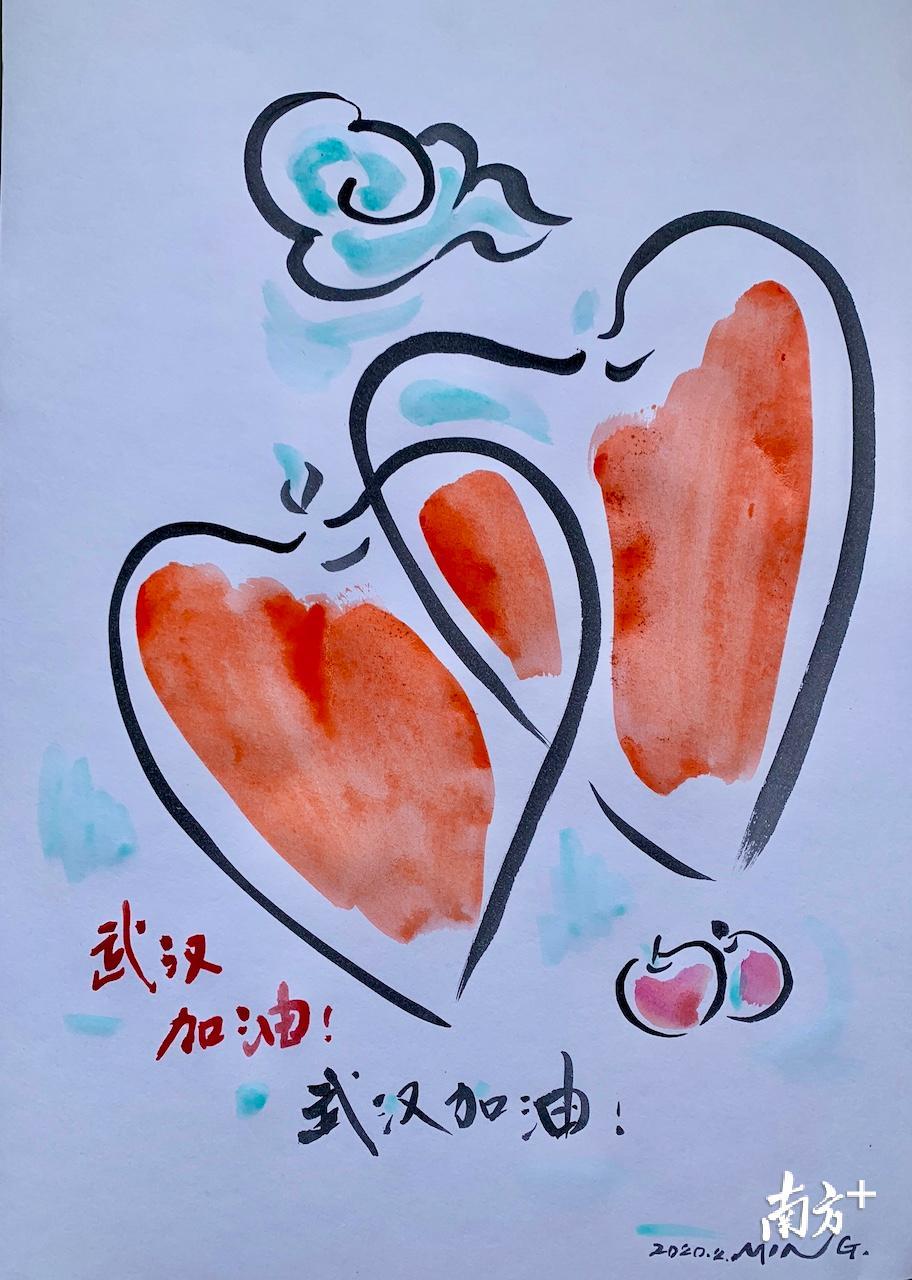 武汉
加油!
武汉加油!
南方+
2020.2.MING.